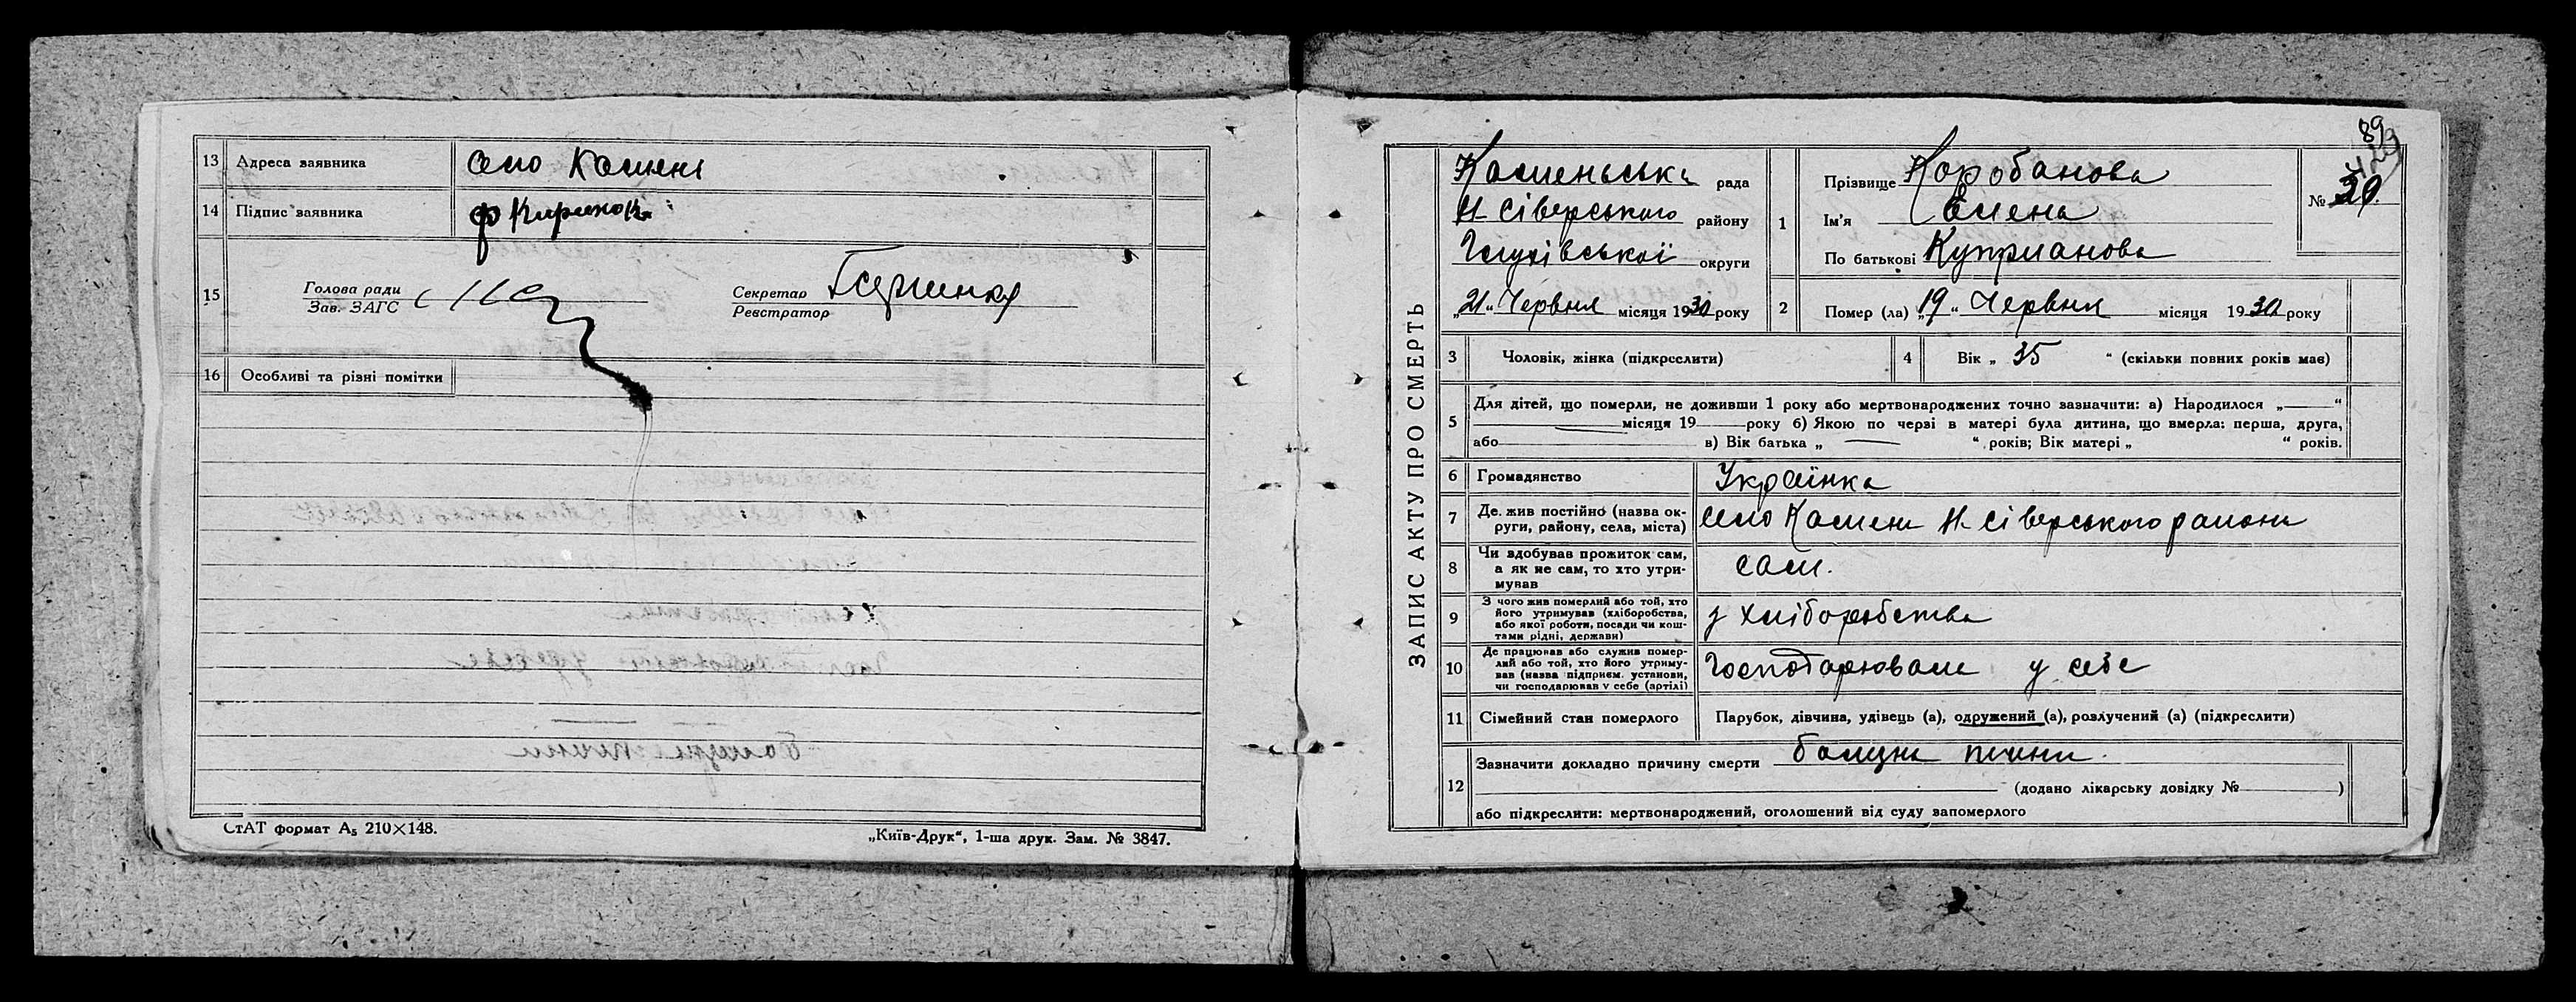 13 Адреса заявника село Камень
14 Підпис заявника
15 Голова ради
Зав. ЗАГС
Секретар
Реєстратор
16 Особливі та різні помітки
СтАТ формат А₅ 210×148.
„Київ-Друк“, 1-ша друк. Зам. № 3847.
89
ЗАПИС АКТУ ПРО СМЕРТЬ
Каменьська рада
Н-Сіверського району
Глухівської округи
„21“ Червня місяця 1930 року
1 Прізвище Коробанова
Ім'я Елена
По батькові Куприанова
№ 39.
2 Помер (ла) „19“ Червня місяця 1930 року
3 Чоловік, жінка (підкреслити)
4 Вік „ 35 “ (скільки повних років має)
5 Для дітей, що померли, не доживши 1 року або мертвонароджених точно зазначити: а) Народилося „ “
місяця 19 року б) Якою по черзі в матері була дитина, що вмерла: перша, друга,
або в) Вік батька „ “ років; Вік матері „ “ років.
6 Громадянство Українка
7 Де жив постійно (назва ок-
руги, району, села, міста) село Камень Н-Сіверського района
8 Чи здобував прожиток сам,
а як не сам, то хто утри-
мував сам.
9 З чого жив померлий або той, хто
його утримував (хліборобства,
або якої роботи, посади чи кош-
тами рідні, держави) з хліборобства
10 Де працював або служив помер-
лий або той, хто його утриму-
вав (назва підприєм. установи,
чи господарював у себе (артілі) Господарювала у себе
11 Сімейний стан померлого Парубок, дівчина, удівець (а), одружений (а), розлучений (а) (підкреслити)
12 Зазначити докладно причину смерти
(додано лікарську довідку № )
або підкреслити: мертвонароджений, оголошений від суду запомерлого